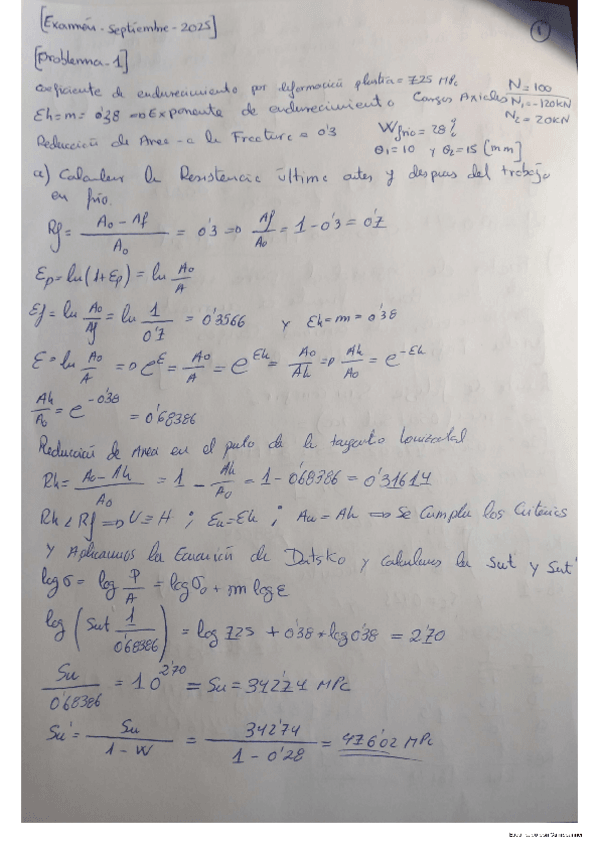 [Examen - Septiembre - 2025]
1
[Problema - 1]
Coeficiente de endurecimiento por deformación plástica = 725 MPa
Eh = m = 0'38 => Exponente de endurecimiento Cargas Axiales
N = 100
N₁ = -120KN
N₂ = 20KN
Reducción de Area - a la Fractura = 0'3
Wfrío = 28 %
θ1 = 10 y θ2 = 15 [mm]
a) Calcular la Resistencia última antes y despues del trabajo
en frío.
Rf = (A₀ - Af) / A₀ = 0'3 => Af/A₀ = 1 - 0'3 = 0'7
Ep = ln(1+Ep) = ln A₀/A
Ef = ln A₀/Af = ln 1/0'7 = 0'3566 y Eh = m = 0'38
E = ln A₀/A => e^E = A₀/A = e^Eh = A₀/Ah => Ah/A₀ = e^-Eh
Ah/A₀ = e^-0'38 = 0'68386
Reducción de Area en el punto de la tangente horizontal
Rh = (A₀ - Ah) / A₀ = 1 - Ah/A₀ = 1 - 0'68386 = 0'31614
Rh < Rf => U = H ; Eu = Eh ; Au = Ah => Se Cumplen los Criterios
Y Aplicamos la Ecuación de Datsko y calculamos la Sut y Sut'
log σ = log P/A = log σ₀ + m log E
log (Sut 1/0'68386) = log 725 + 0'38 * log 0'38 = 2'70
Su/0'68386 = 10^2'70 = Su = 342'74 MPa
Su' = Su / (1 - W) = 342'74 / (1 - 0'28) = 476'02 MPa